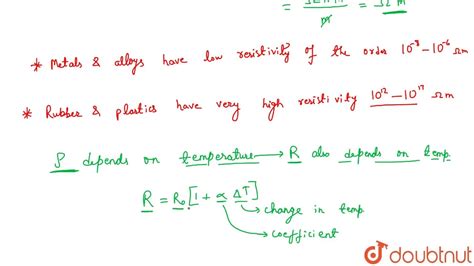 = Ω m
* Metals & alloys have low resistivity of the order 10⁻⁸ – 10⁻⁶ Ωm
* Rubber & plastics have very high resistivity 10¹² – 10¹⁷ Ωm
ρ depends on temperature → R also depends on temp
R = R₀ [1 + α ΔT]
→ change in temp
→ coefficient
doubtnut